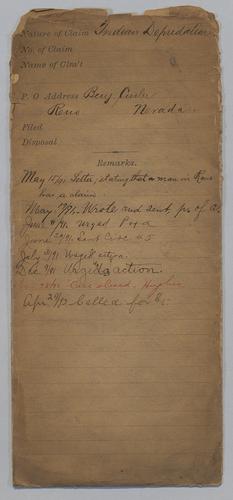 Nature of Claim Indian Depredation
No. of Claim
Name of Clm't
P. O Address Benj.
Reno Nevada
Filed
Disposal
Remarks.
May 15/91 Letter, stating that a man in Reno
has a claim.
May Wrote and sent pr of a.
June urged P of a
June 29/91 Sent Circ # 5
July /91 Urged action.
Dec /91 Urged action.
28/92 Case closed. Hughes
Apr 28/93 Called for